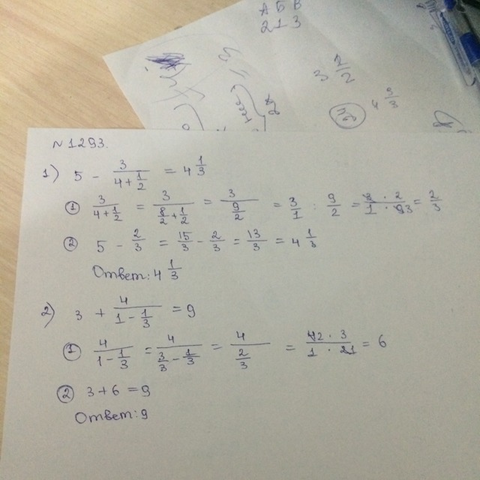 А Б В
2 1 3
№1293.
1) 5 - 3/(4+1/2) = 4 1/3
① 3/(4+1/2) = 3/(8/2+1/2) = 3/(9/2) = 3/1 : 9/2 = 3·2/1·93 = 2/3
② 5 - 2/3 = 15/3 - 2/3 = 13/3 = 4 1/3
Ответ: 4 1/3
2) 3 + 4/(1 - 1/3) = 9
① 4/(1-1/3) = 4/(3/3 - 1/3) = 4/(2/3) = 42·3/1·21 = 6
② 3+6=9
Ответ: 9